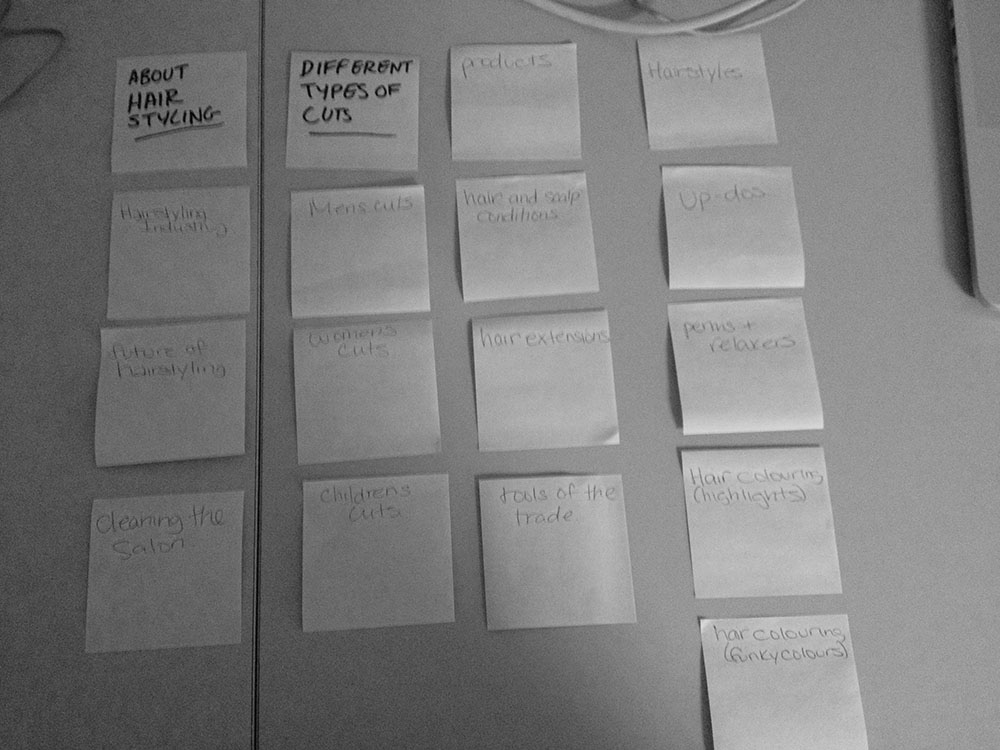 ABOUT
HAIR
STYLING
Hairstyling
Industry
future of
hairstyling
cleaning the
salon
DIFFERENT
TYPES OF
CUTS
Mens cuts
womens
cuts
childrens
cuts
products
hair and scalp
conditions
hair extensions
tools of the
trade
Hairstyles
Up-dos
perms +
relaxers
Hair colouring
(highlights)
hair colouring
(funky colours)